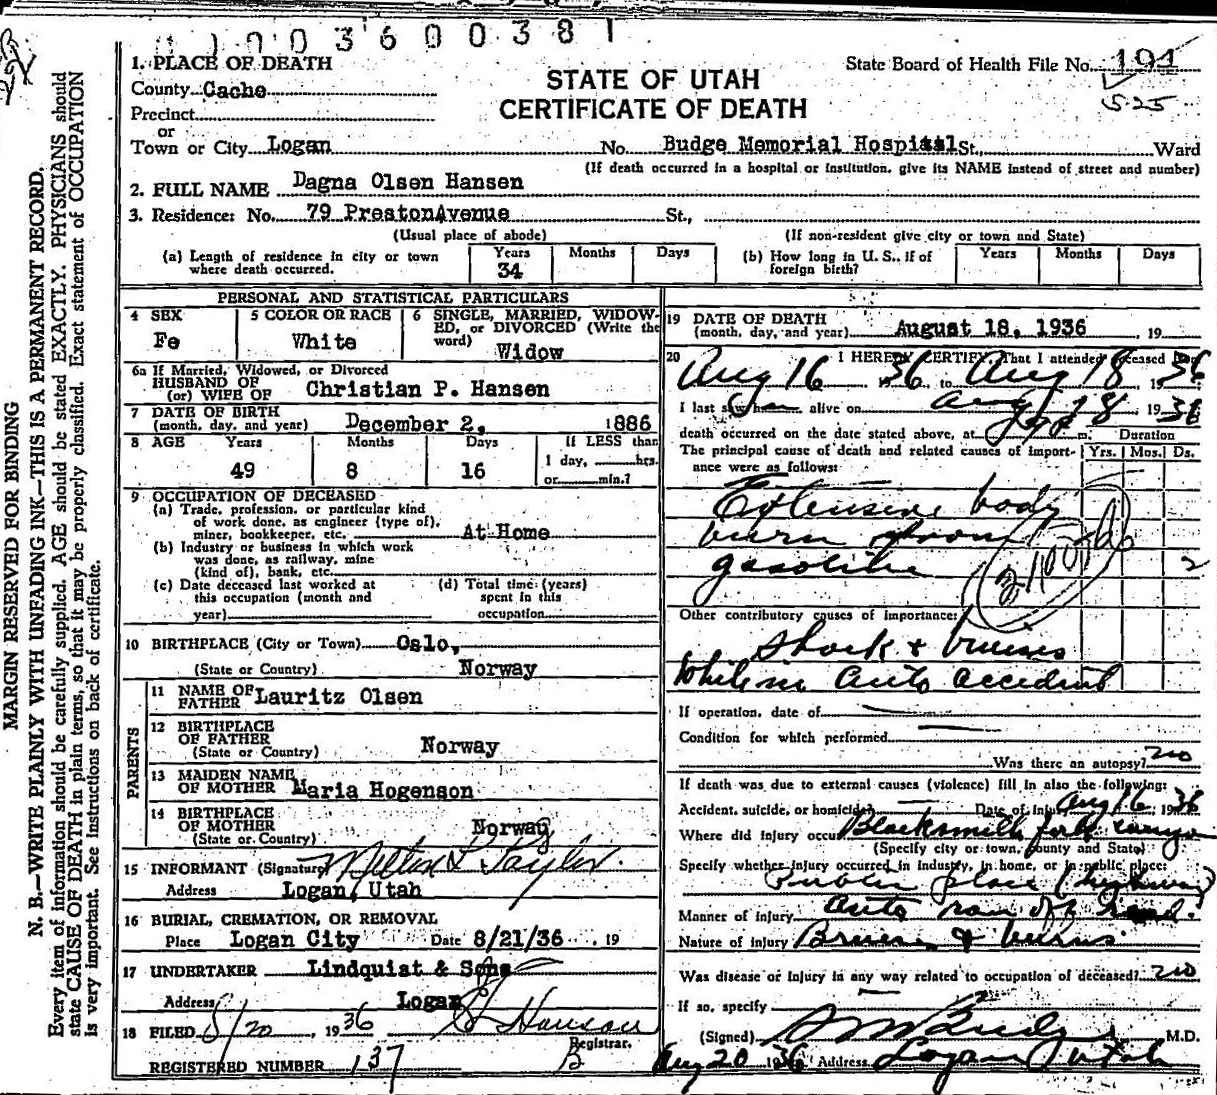 1 1 0 0 3 6 0 0 3 8 1
1. PLACE OF DEATH
County Cache
Precinct
or
Town or City Logan
STATE OF UTAH
CERTIFICATE OF DEATH
State Board of Health File No. 191
525
No. Budge Memorial Hospital St., Ward
(If death occurred in a hospital or institution, give its NAME instead of street and number)
2. FULL NAME Dagna Olsen Hansen
3. Residence: No. 79 PrestonAvenue St.,
(Usual place of abode) (If non-resident give city or town and State)
(a) Length of residence in city or town where death occurred. Years 34 Months Days
(b) How long in U. S., if of foreign birth? Years Months Days
PERSONAL AND STATISTICAL PARTICULARS
4 SEX Fe
5 COLOR OR RACE White
6 SINGLE, MARRIED, WIDOWED, or DIVORCED (Write the word) Widow
6a If Married, Widowed, or Divorced
HUSBAND OF
(or) WIFE OF Christian P. Hansen
7 DATE OF BIRTH
(month, day, and year) December 2, 1886
8 AGE Years 49 Months 8 Days 16
If LESS than 1 day, hrs. or min.?
9 OCCUPATION OF DECEASED
(a) Trade, profession, or particular kind
of work done, as engineer (type of),
miner, bookkeeper, etc. At Home
(b) Industry or business in which work
was done, as railway, mine
(kind of), bank, etc.
(c) Date deceased last worked at
this occupation (month and
year)
(d) Total time (years)
spent in this
occupation
10 BIRTHPLACE (City or Town) Oslo,
(State or Country) Norway
PARENTS
11 NAME OF FATHER Lauritz Olsen
12 BIRTHPLACE OF FATHER
(State or Country) Norway
13 MAIDEN NAME OF MOTHER Maria Hogenson
14 BIRTHPLACE OF MOTHER
(State or Country) Norway
15 INFORMANT (Signature) Milton L Taylor
Address Logan, Utah
16 BURIAL, CREMATION, OR REMOVAL
Place Logan City Date 8/21/36 , 19
17 UNDERTAKER Lindquist & Sons
Address Logan
18 FILED 8/20, 1936 Hansen
Registrar.
REGISTERED NUMBER 137
19 DATE OF DEATH
(month, day, and year) August 18, 1936 , 19
20 I HEREBY CERTIFY, That I attended deceased from
Aug 16 1936 to Aug 18, 1936
I last saw h alive on Aug 18, 1936
death occurred on the date stated above, at m. Duration
The principal cause of death and related causes of importance were as follows: Yrs. Mos. Ds.
Extensive body
burn from
gasoline 2
Other contributory causes of importance:
Shock & bruises
While in auto accident
If operation, date of
Condition for which performed
Was there an autopsy? no
If death was due to external causes (violence) fill in also the following:
Accident, suicide, or homicide? Date of Injury Aug 16, 1936
Where did injury occur Blacksmith fork canyon
(Specify city or town, county and State)
Specify whether injury occurred in industry, in home, or in public place:
Public place (highway)
Manner of injury Auto ran off road.
Nature of injury Bruises & burns
Was disease or injury in any way related to occupation of deceased? no
If so, specify
(Signed) Budge M.D.
Aug 20 1936 Address Logan Utah
MARGIN RESERVED FOR BINDING
N. B.—WRITE PLAINLY WITH UNFADING INK—THIS IS A PERMANENT RECORD.
Every item of information should be carefully supplied. AGE should be stated EXACTLY. PHYSICIANS should
state CAUSE OF DEATH in plain terms, so that it may be properly classified. Exact statement of OCCUPATION
is very important. See instructions on back of certificate.